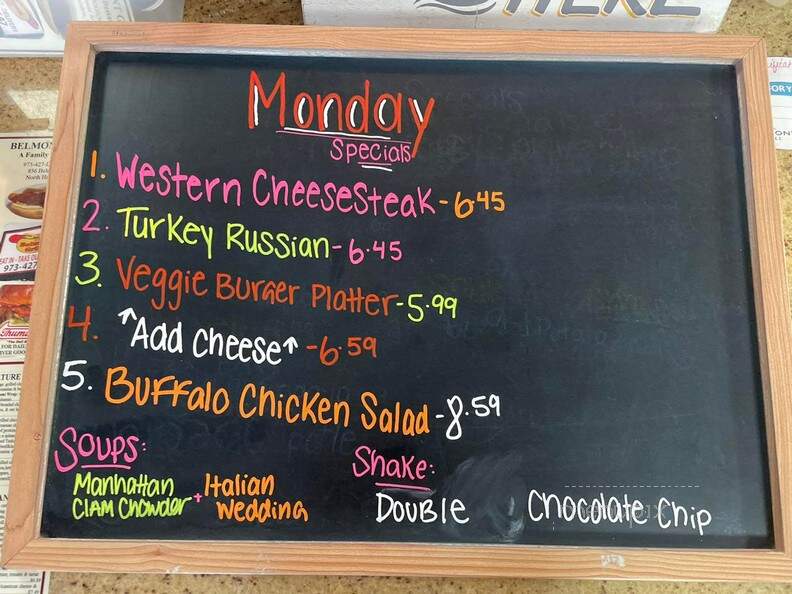 HERE
Monday
Specials
1. Western CheeseSteak - 6.45
2. Turkey Russian - 6.45
3. Veggie Burger Platter - 5.99
4. ↑Add cheese↑ - 6.59
5. Buffalo Chicken Salad - 8.59
Soups:
Manhattan
Clam Chowder + Italian
Wedding
Shake:
Double Chocolate Chip
BELMON
A Family
973-427
EAT IN - TAKE OU
973-427